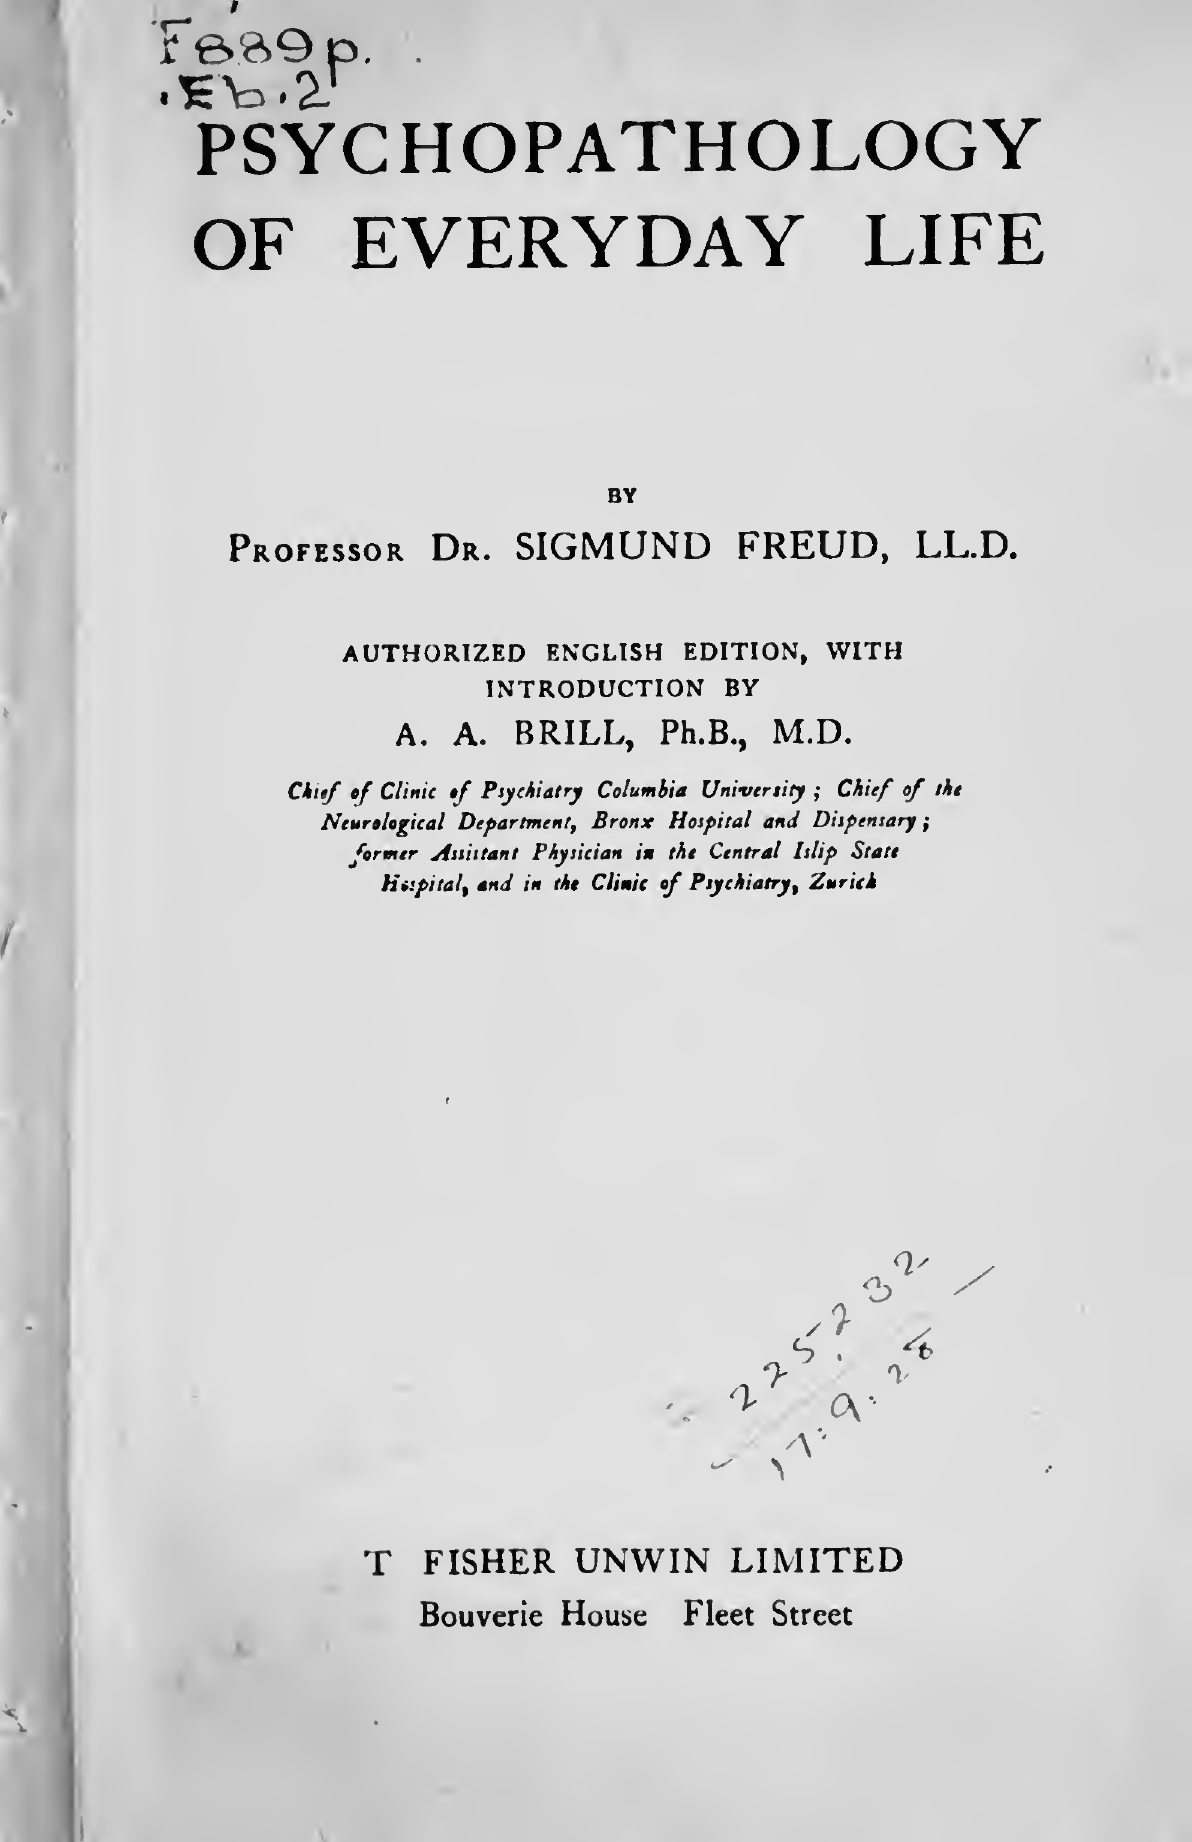 F889p.
.Eb.2
PSYCHOPATHOLOGY
OF EVERYDAY LIFE
BY
PROFESSOR DR. SIGMUND FREUD, LL.D.
AUTHORIZED ENGLISH EDITION, WITH
INTRODUCTION BY
A. A. BRILL, Ph.B., M.D.
Chief of Clinic of Psychiatry Columbia University ; Chief of the
Neurological Department, Bronx Hospital and Dispensary ;
former Assistant Physician in the Central Islip State
Hospital, and in the Clinic of Psychiatry, Zurich
225232
17:9:28
T FISHER UNWIN LIMITED
Bouverie House Fleet Street